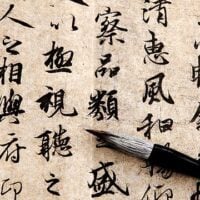 清惠風和暢仰
察品類之盛
以極視聽之
人之相與俯仰